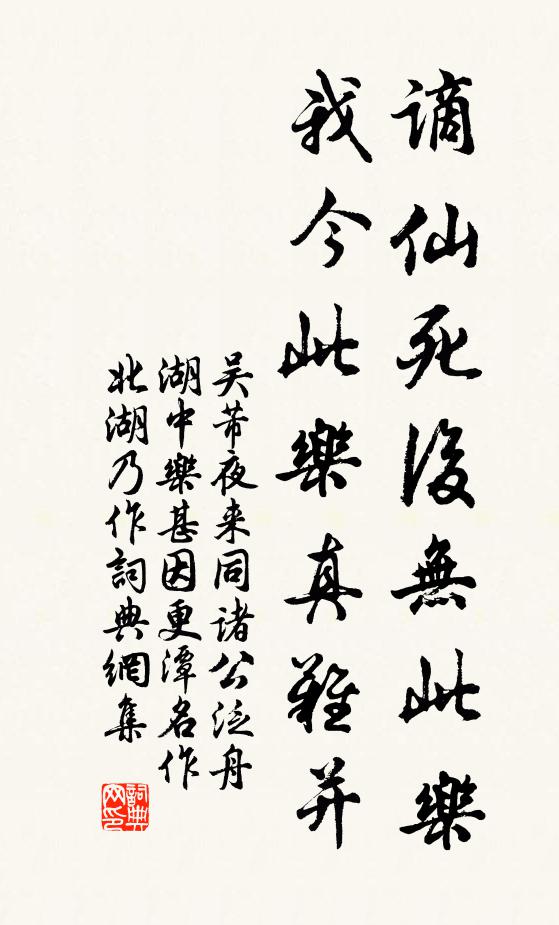 謫仙死後無此樂
我今此樂真難并
吴芾夜来同諸公泛舟
湖中樂甚因更潭名作
北湖乃作詞典網集
詞典
网印